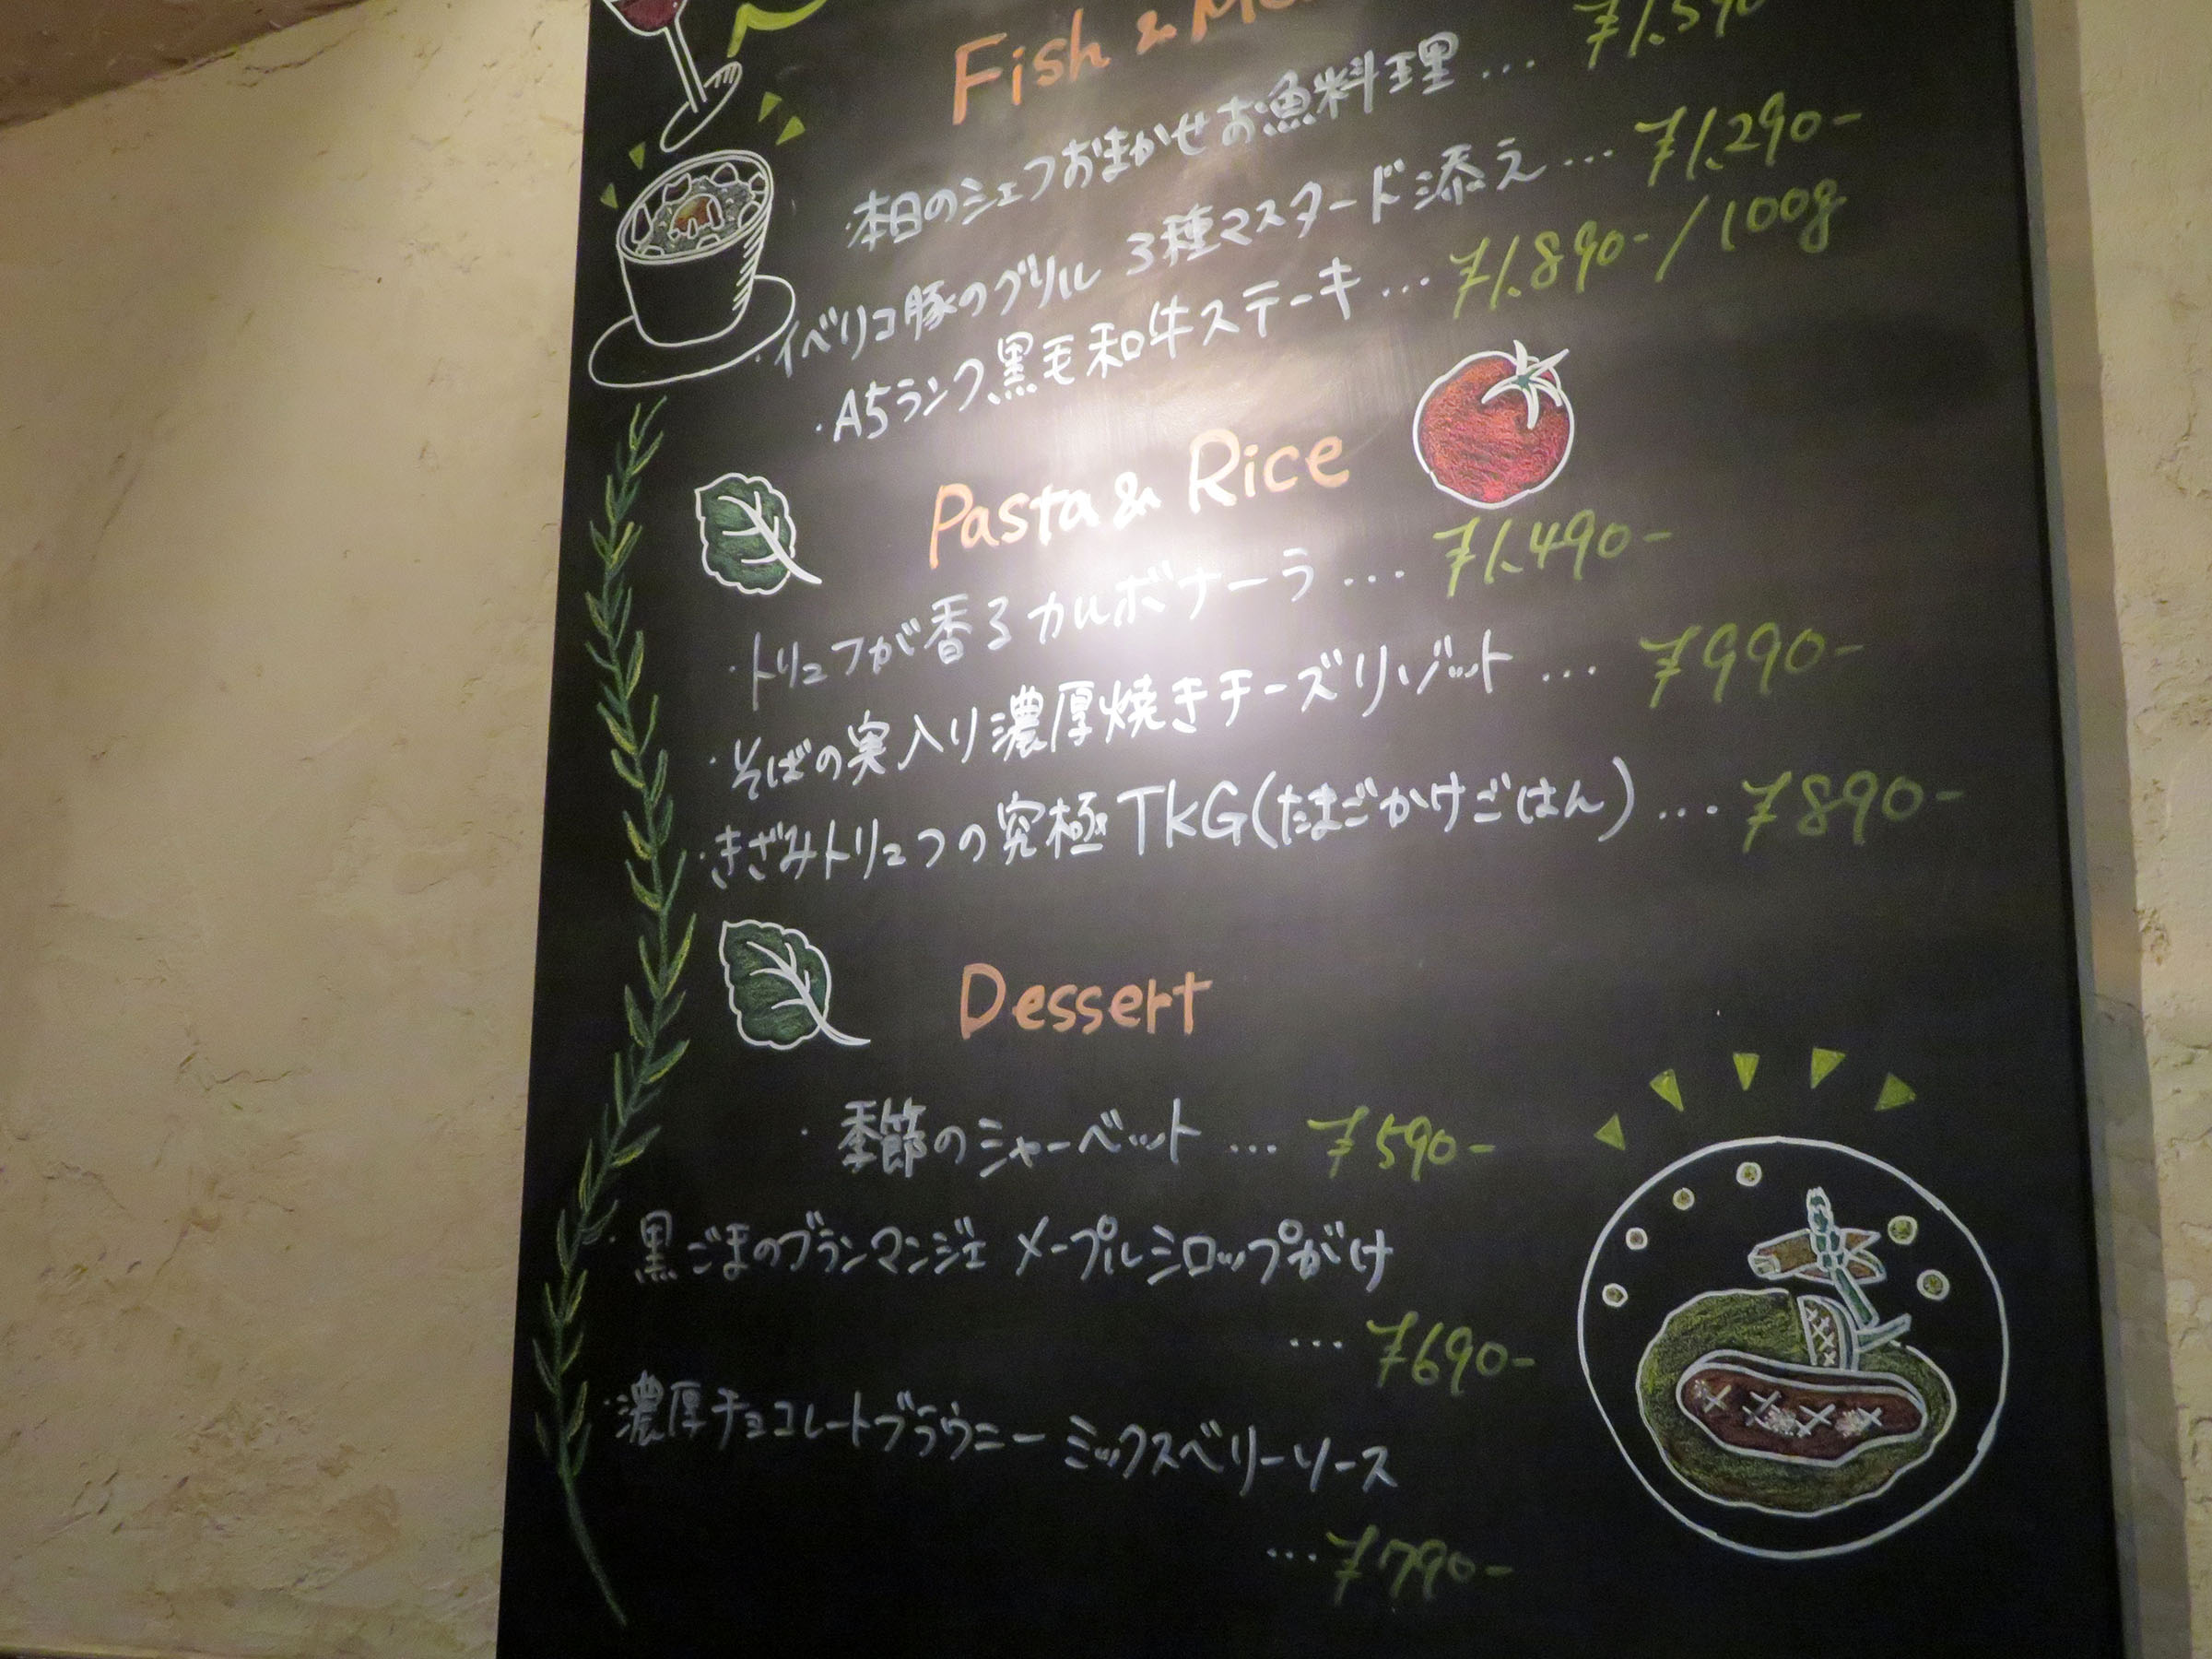 Fish & Me
・本日のシェフおまかせお魚料理 ... ¥1,590
・イベリコ豚のグリル 3種マスタード添え ... ¥1,290-
・A5ランク黒毛和牛ステーキ ... ¥1,890-/100g
Pasta & Rice
・トリュフが香るカルボナーラ ... ¥1,490-
・そばの実入り濃厚焼きチーズリゾット ... ¥990-
・きざみトリュフの究極TKG(たまごかけごはん) ... ¥890-
Dessert
・季節のシャーベット ... ¥590-
・黒ごまのブランマンジェ メープルシロップがけ
... ¥690-
・濃厚チョコレートブラウニー ミックスベリーソース
... ¥790-